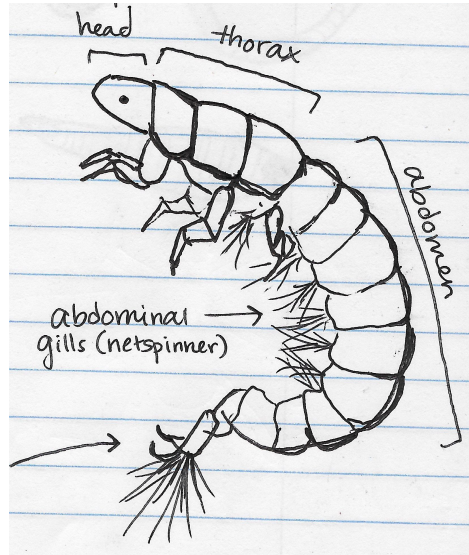 head
thorax
abdomen
abdominal
gills (netspinner)